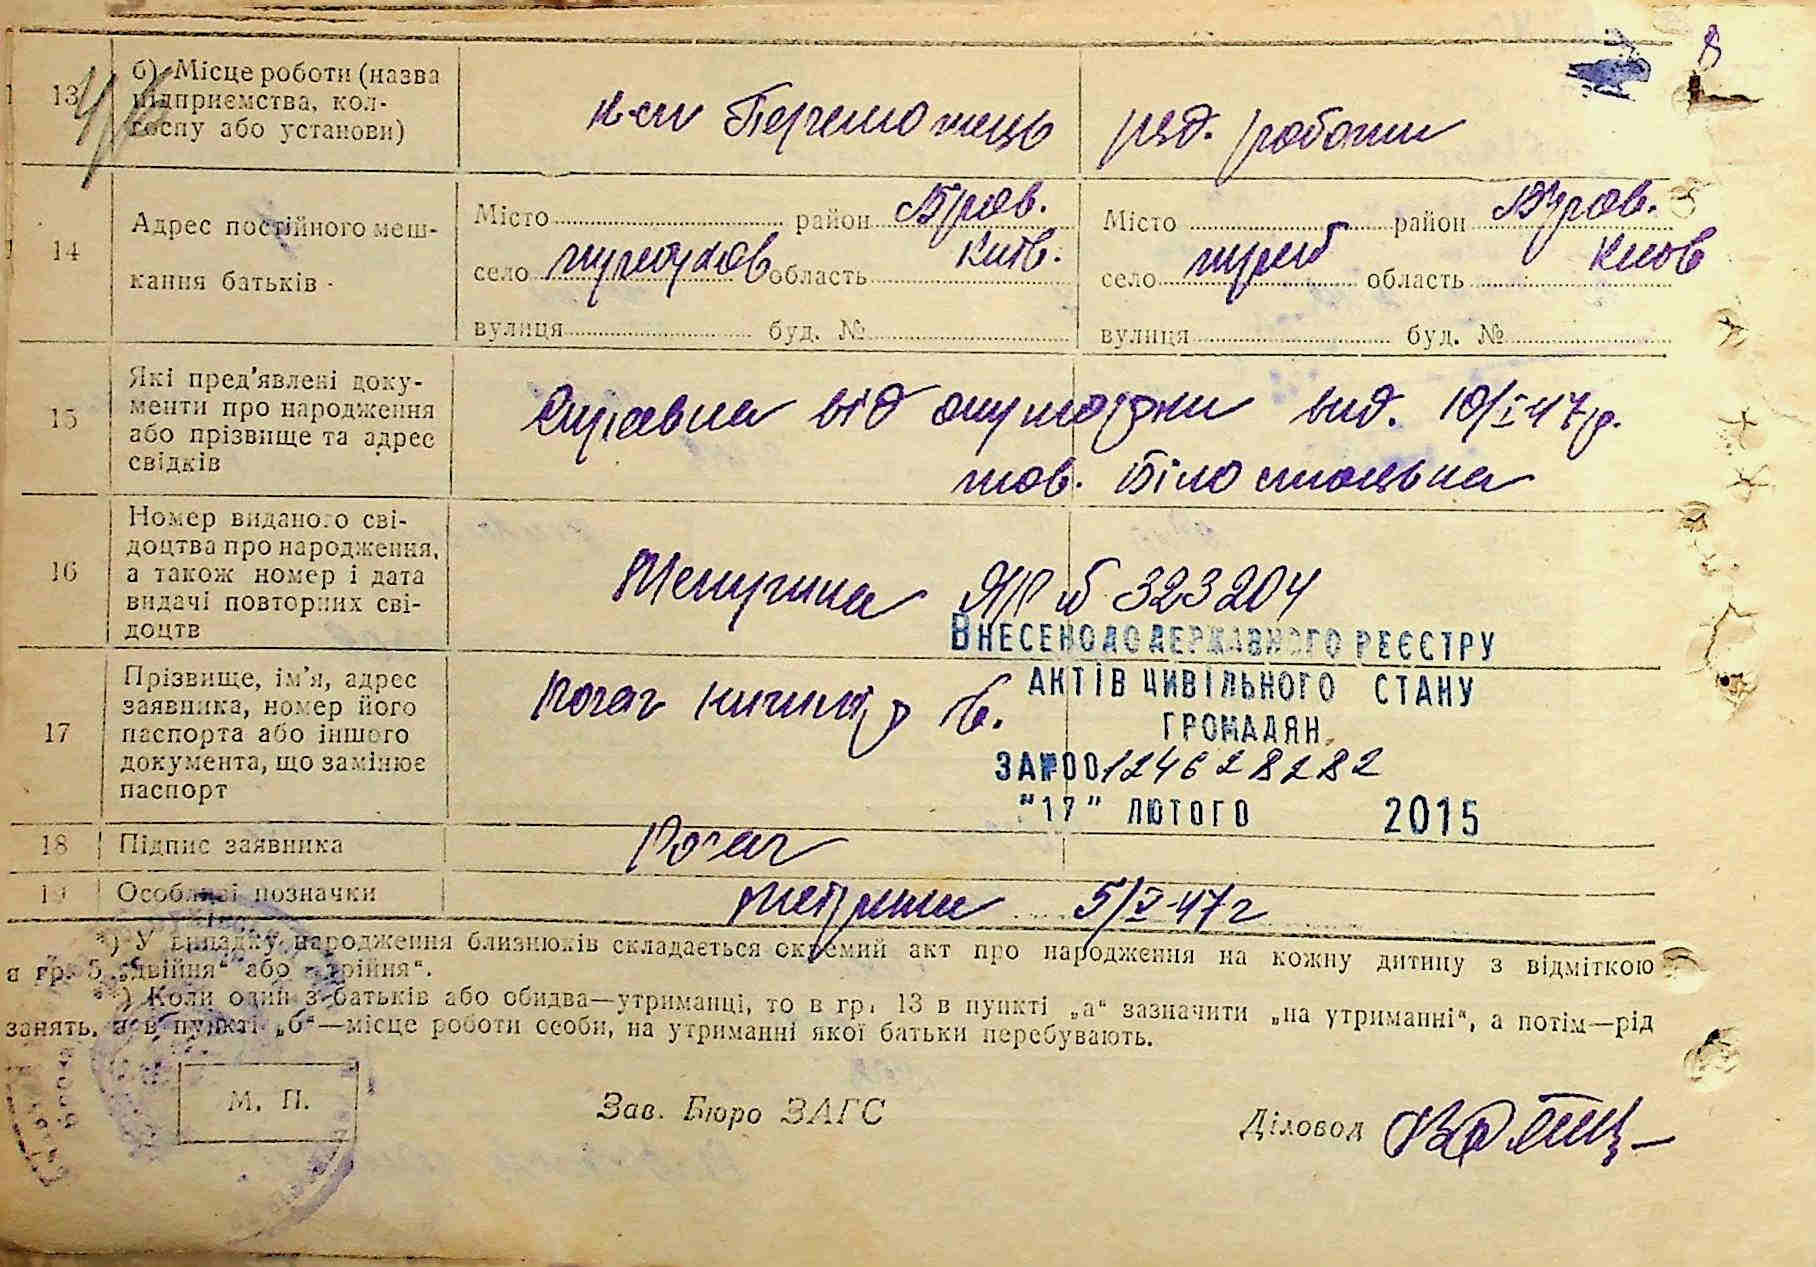 8
13
б) Місце роботи (назва
підприємства, кол-
госпу або установи)
к-сп Переможець
ряд. роботи
14
Адрес постійного меш-
кання батьків
Місто район Бров.
село область Київ.
вулиця буд. №
Місто район Бров.
село область Київ
вулиця буд. №
15
Які пред'явлені доку-
менти про народження
або прізвище та адрес
свідків
Справка від акушорки вид. 10/I-47р.
тов. Білостоцька
16
Номер виданого сві-
доцтва про народження,
а також номер і дата
видачі повторних сві-
доцтв
323204
ВНЕСЕНО ДО ДЕРЖАВНОГО РЕЄСТРУ
АКТІВ ЦИВІЛЬНОГО СТАНУ
ГРОМАДЯН
ЗА №00124628282
"17" ЛЮТОГО 2015
17
Прізвище, ім'я, адрес
заявника, номер його
паспорта або іншого
документа, що замінює
паспорт
Рогач
18
Підпис заявника
Рогач
19
Особливі позначки
5/V-47г
*) У випадку народження близнюків складається окремий акт про народження на кожну дитину з відміткою
в гр. 5 „двійня“ або „трійня“.
**) Коли один з батьків або обидва—утриманці, то в гр. 13 в пункті „а“ зазначити „на утриманні“, а потім—рід
занять, а в пункті „б“—місце роботи особи, на утриманні якої батьки перебувають.
М. П.
Зав. Бюро ЗАГС
Діловод